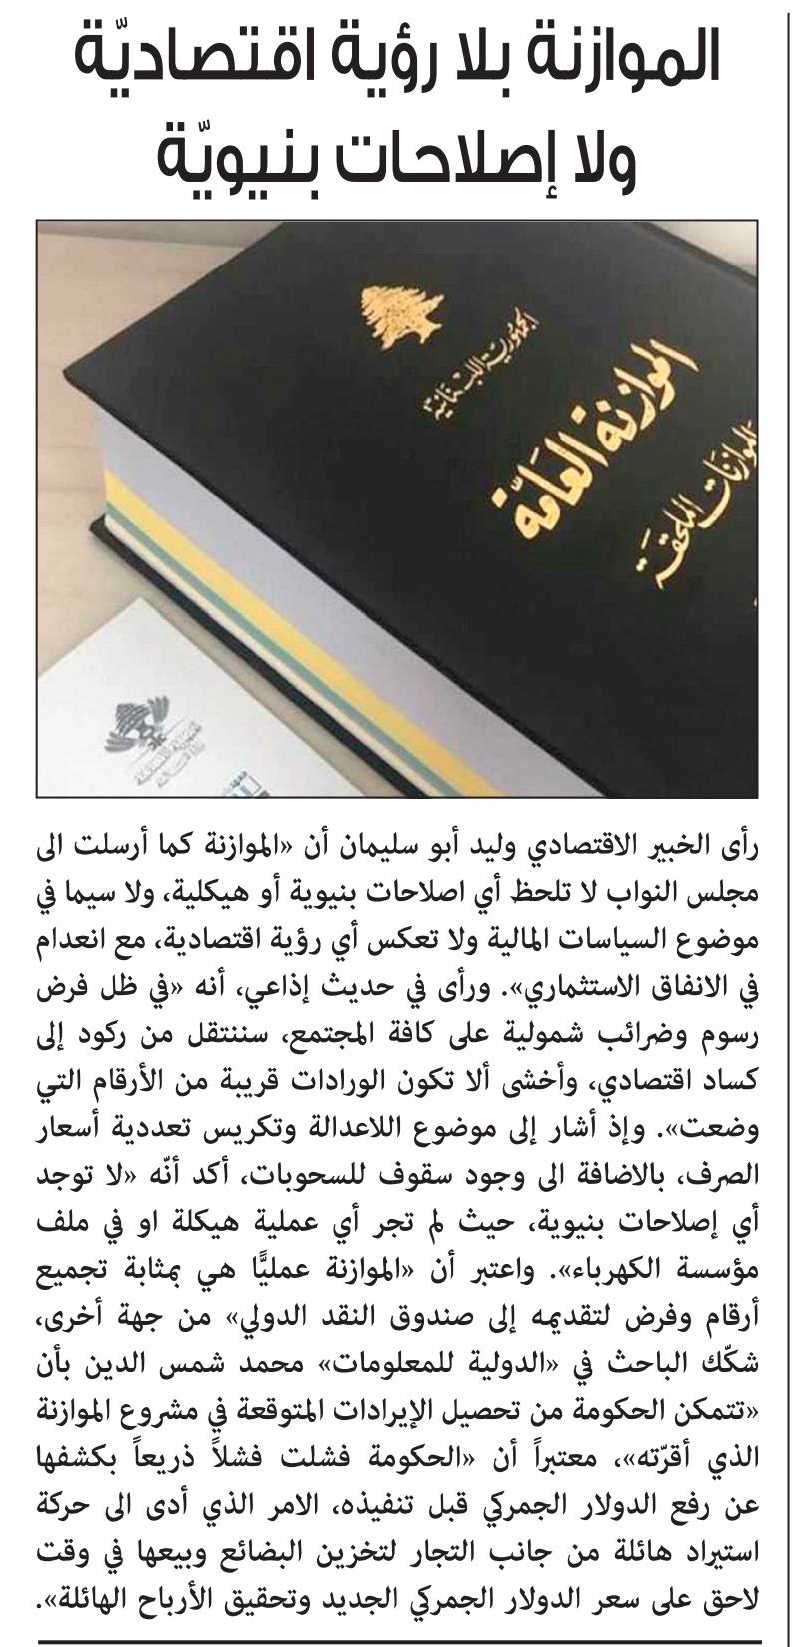 الموازنة بلا رؤية اقتصاديّة
ولا إصلاحات بنيويّة
الجمهورية اللبنانية
الموازنة العامّة
الموازنات الملحقة
رأى الخبير الاقتصادي وليد أبو سليمان أن «الموازنة كما أرسلت الى
مجلس النواب لا تلحظ أي اصلاحات بنيوية أو هيكلية، ولا سيما في
موضوع السياسات المالية ولا تعكس أي رؤية اقتصادية، مع انعدام
في الانفاق الاستثماري». ورأى في حديث إذاعي، أنه «في ظل فرض
رسوم وضرائب شمولية على كافة المجتمع، سننتقل من ركود إلى
كساد اقتصادي، وأخشى ألا تكون الورادات قريبة من الأرقام التي
وضعت». وإذ أشار إلى موضوع اللاعدالة وتكريس تعددية أسعار
الصرف، بالاضافة الى وجود سقوف للسحوبات، أكد أنّه «لا توجد
أي إصلاحات بنيوية، حيث لم تجر أي عملية هيكلة او في ملف
مؤسسة الكهرباء». واعتبر أن «الموازنة عمليًّا هي بمثابة تجميع
أرقام وفرض لتقديمه إلى صندوق النقد الدولي» من جهة أخرى،
شكّك الباحث في «الدولية للمعلومات» محمد شمس الدين بأن
«تتمكن الحكومة من تحصيل الإيرادات المتوقعة في مشروع الموازنة
الذي أقرّته»، معتبراً أن «الحكومة فشلت فشلاً ذريعاً بكشفها
عن رفع الدولار الجمركي قبل تنفيذه، الامر الذي أدى الى حركة
استيراد هائلة من جانب التجار لتخزين البضائع وبيعها في وقت
لاحق على سعر الدولار الجمركي الجديد وتحقيق الأرباح الهائلة».